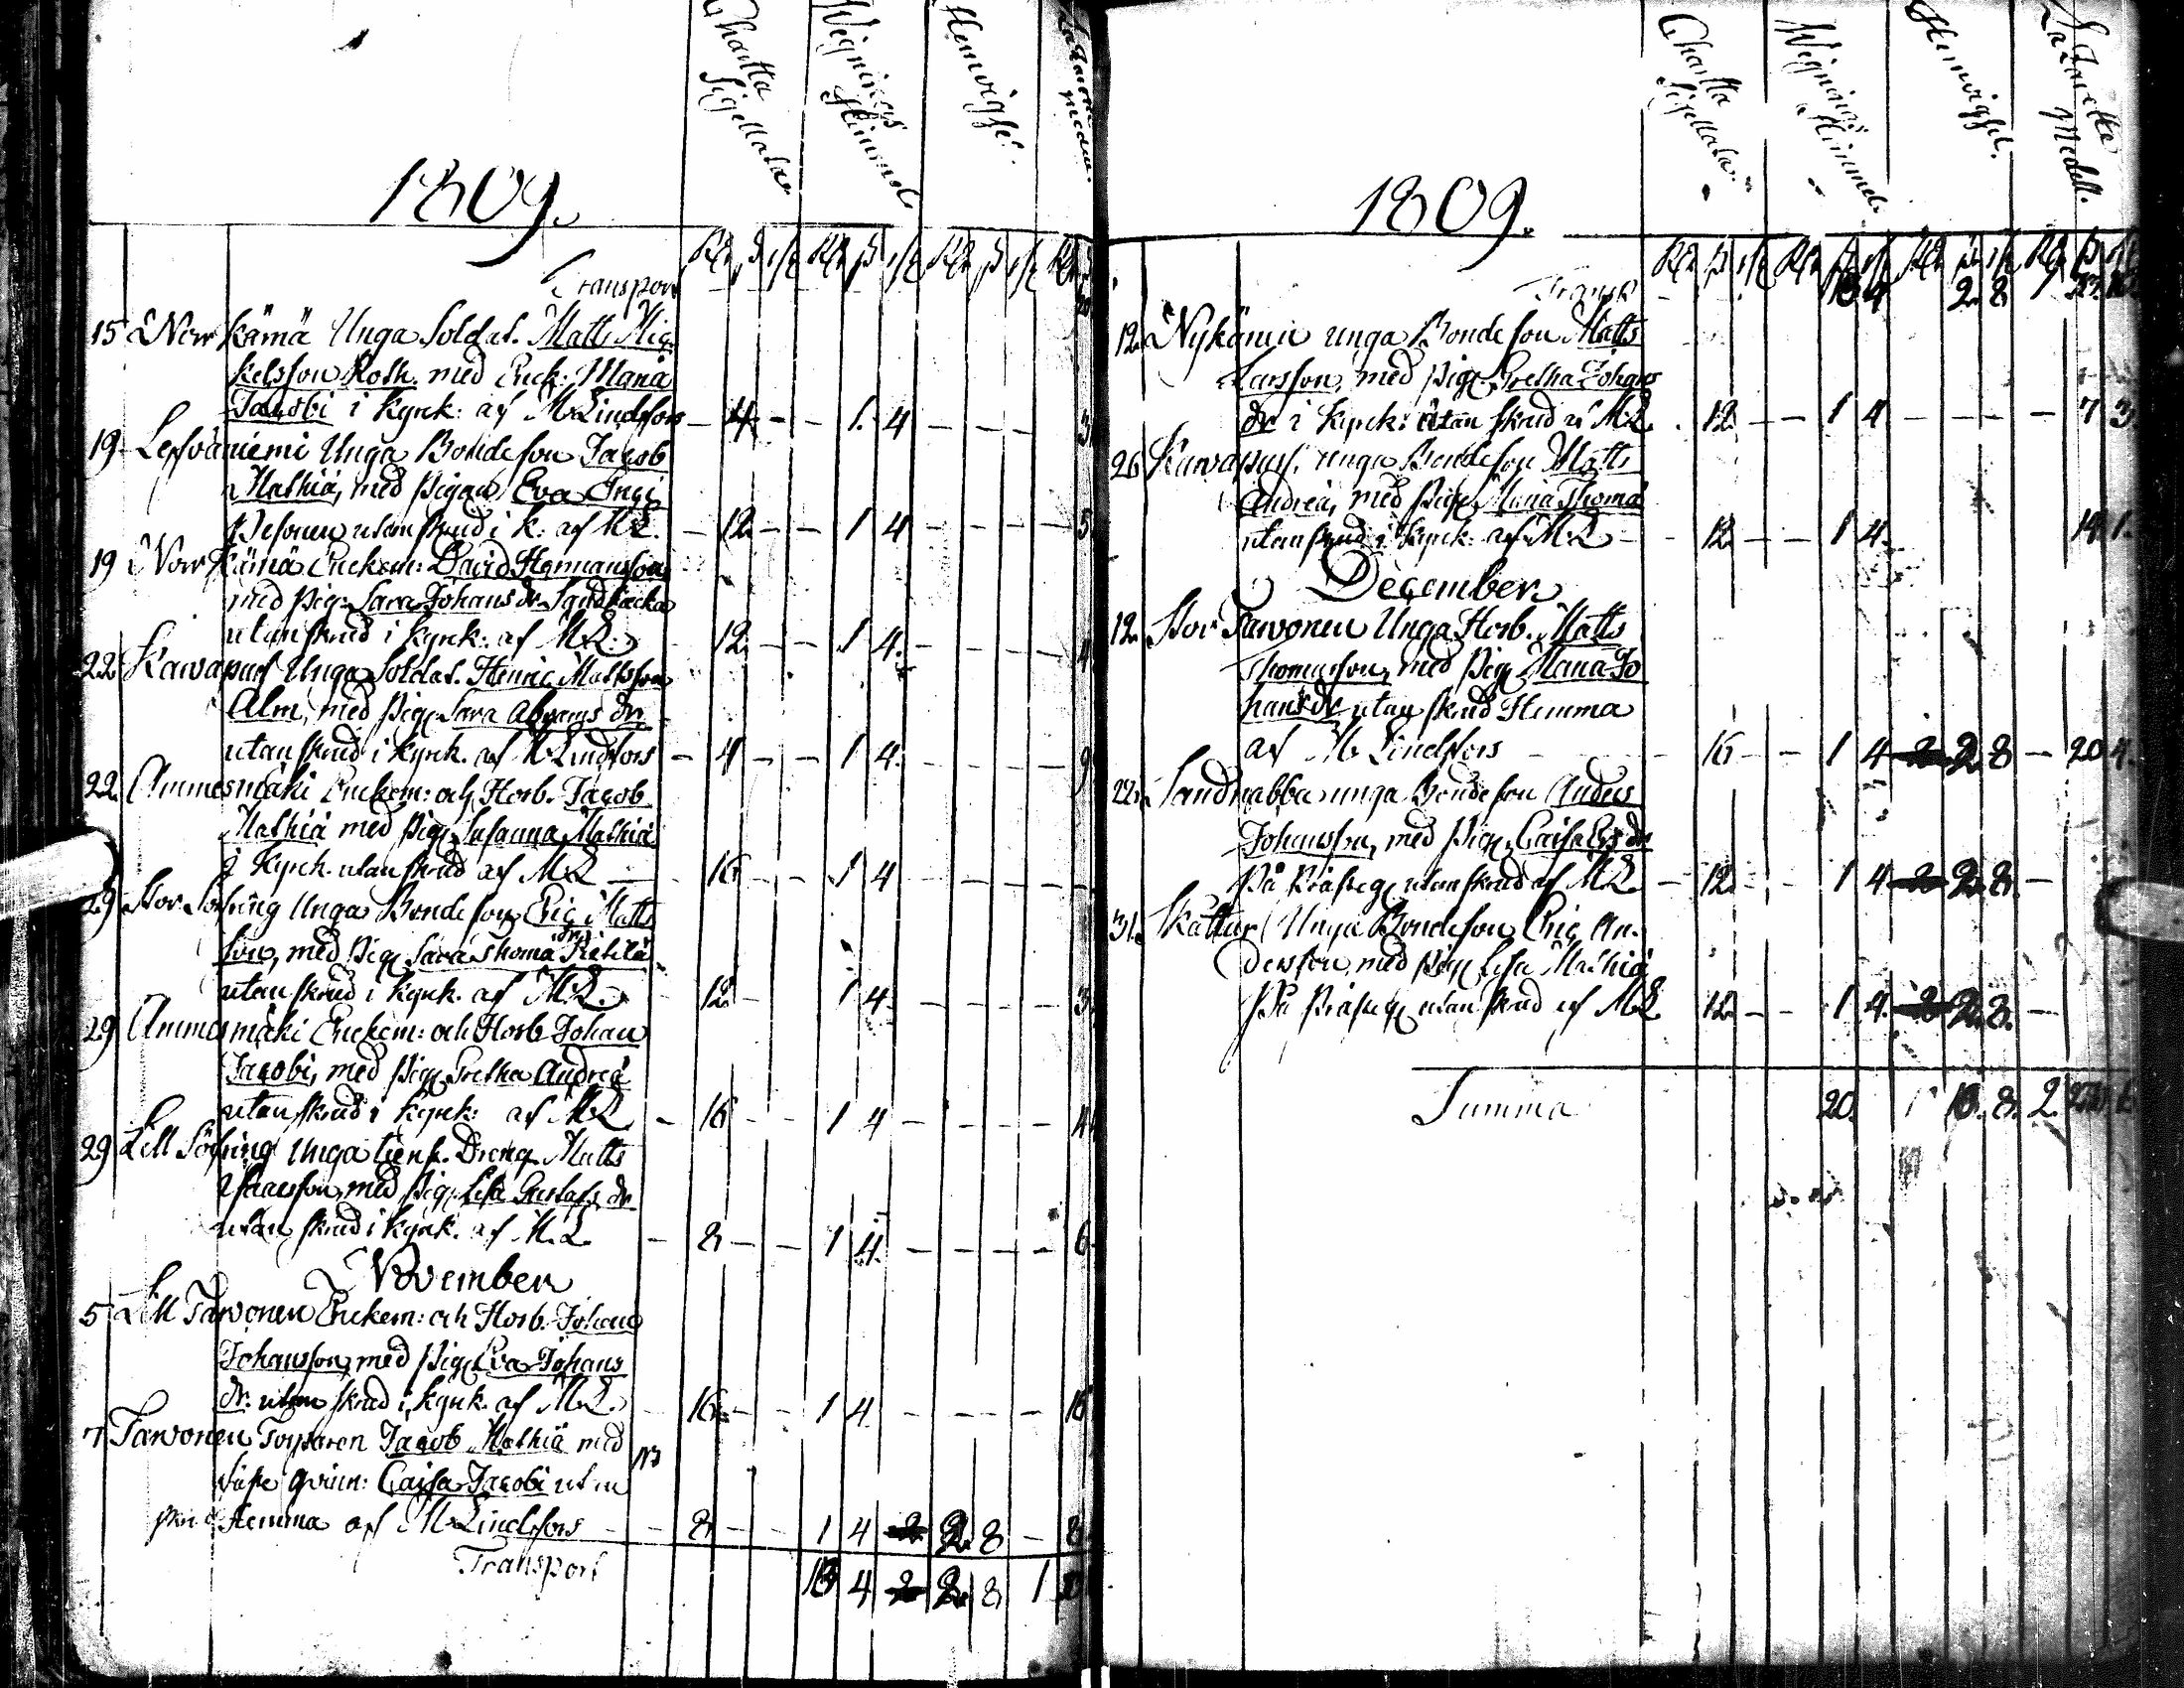 Chartta Sigellata
Wignings Stimmel
Hemvigsel
1809.
Rdr ß rst Rdr ß rst Rdr ß rst Rdr
Transport
15 Norr Kämä Unga Soldat. Matts Mic
kelsson Roth. med Enck: Maria
Jacobi i kyrck: af M. Lindfors – 4 – – 1. 4 – – – 3
19 Lefväniemi Unga Bondeson Jacob
Mathiä, med Pigan Eva Ingi
Pesonen utan skrud i k: af M.L. – 12 – – 1 4 – – – – 5
19 Norr Kämä Enckem: David Hermansson
med Pig. Sara Johans dr Sandbacka
utan skrud i kyrck: af M.L. – 12 – – 1 4. – – – – 4
22 Kawapus Unga Soldat. Henric Mattsson
Alm, med Pig. Sara Abrams dr
utan skrud i kyrck. af M. Lindfors – 4 – – 1 4. – – – – 9
22. Ammesmäki Enckem: och Horb. Jacob
Mathiä med Pig. Susanna Mathiä
i Kyrck. utan skrud af M.L. – 16 – – 1 4 – – – –
29 Stor Sörring Unga Bondeson Eric Matts
son, med Pig. Sara Thomä dr Pietilä
utan skrud i kyrck. af M.L. – 12 – 1 4. – – – – 3
29 Ammesmäki Enckem: och Horb Johan
Jacobi, med Pig. Gretha Andreä
utan skrud i kyrck: af M.L. – 16 – – 1 4 – – – – 4
29 Lill Sörring Unga tienst. Dreng Matts
Isaacsson, med Pig. Lisa Gustafs dr
utan skrud i kyrck. af M.L. – 8 – – 1 4. – – – – 6
November
5 Lill Tarvonen Enckem: och Horb. Johan
Johansson, med Pig. Eva Johans
dr. utan skrud i kyrck. af M.L. – 16 – – 1 4 – – – – 16
7 Tarvonen Torparen Jacob Mathiä med
qvinn: Caisa Jacobi utan
skrud Hemma af M. Lindfors – – 8 – – 1 4 2. 8 – 8
Transport 13 4 2. 8 1
Chartta Sigellata.
Wignings Stimmel
Hemvigsel.
Lazaretts Medell.
1809.
Rdr ß rst Rdr ß rst Rdr ß rst Rdr ß rst
Transp. 13 4 2. 8 1
12. Nykämä unga Bondeson Matts
Larsson, med Pig. Gretha Johans
dr i kyrck: utan skrud af M.L. . 12 – – 1 4 – – – – 7 3
26 Kawapus. unga Bondeson Matts
Andreä, med Pig. Maria Thomä
utan skrud i kyrck. af M.L. – – 12 – – 1 4. 14 1.
December
12. Stor Tarvonen Unga Horb. Matts
Thomasson, med Pig. Maria Jo
hans dr utan skrud Hemma
af M. Lindfors – – 16 – – 1 4 2. 8 – 20 4.
22. Sandnabba unga Bondeson Anders
Johansson, med Pig. Caisa Ers dr
På Prästeg. utan skrud af M.L. – 12 – – 1 4 2. 8. –
31. Skattur Unga Bondeson Eric An-
dersson, med Pig. Lisa Mathiä
På Prästeg. utan skrud af M.L. 12 – – 1 4. 2. 8. –
Summa 20. 8. 2.